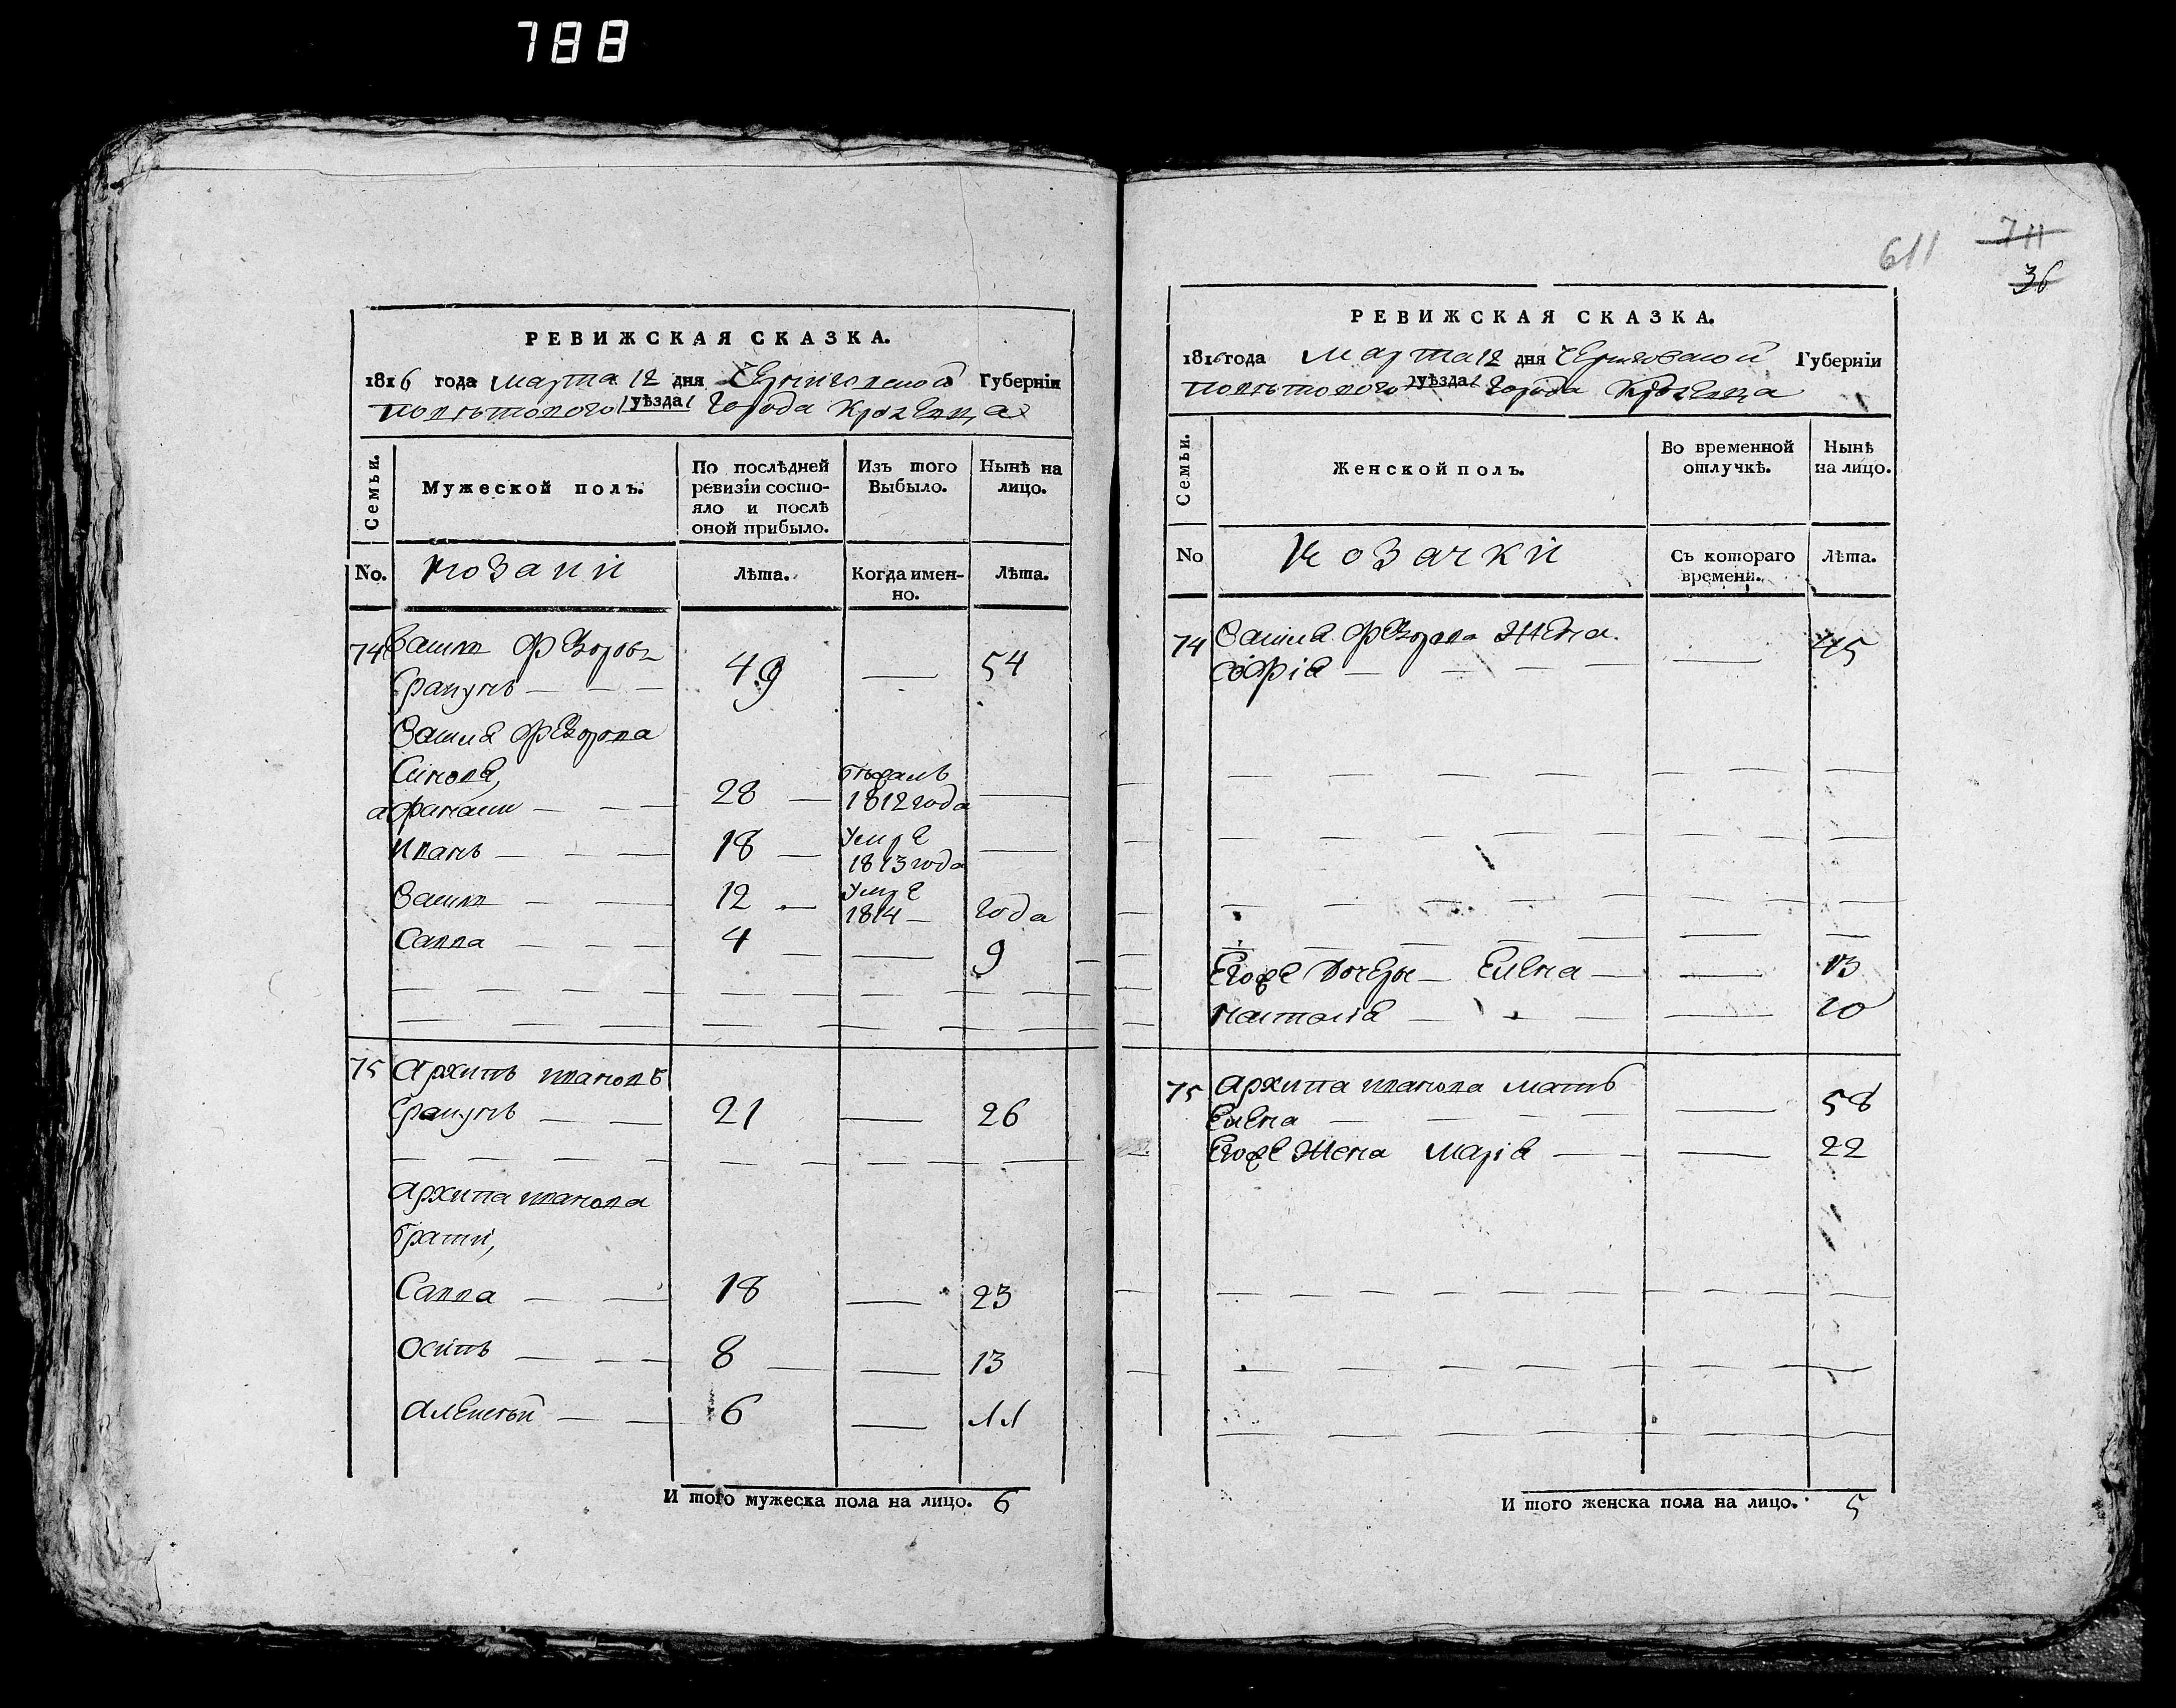 788
РЕВИЖСКАЯ СКАЗКА.
1816 года марта 12 дня Черниговской Губерніи
уѣзда города Кролевца
Семьи.
Мужеской полъ.
По послѣдней ревизіи состо-яло и послѣ оной прибыло.
Изъ того Выбыло.
Нынѣ на лицо.
No.
козаки
Лѣта.
Когда имен-но.
Лѣта.
74 Федоровъ
49 — 54
Федорова
Синовя,
афанаси — — — 28 — 1812 года —
Иванъ — — — 18 — умре 1813 года —
12 — умре 1814 — года
Савва — — — 4 — — 9
75 Архипъ Ивановъ
21 — 26
Архипа Иванова
брати,
Савва — — 18 — 23
Осипъ — — — 8 — — 13
Алексѣй — — 6 — 11
И того мужеска пола на лицо. 6
611
711
36
РЕВИЖСКАЯ СКАЗКА.
1816 года Марта 12 дня Черниговской Губерніи
уѣзда города Кролевца
Семьи.
Женской полъ.
Во временной отлучкѣ.
Нынѣ на лицо.
No
козачки
Съ котораго времени.
Лѣта.
74 Федорова Жена
Софія — — — — — 45
Егоже дочери — Елена — — 13
Наталія — — — — 10
75 Архипа Иванова мать
Елена — — — — — 58
Егоже Жена Марія — — — 22
И того женска пола на лицо. 5